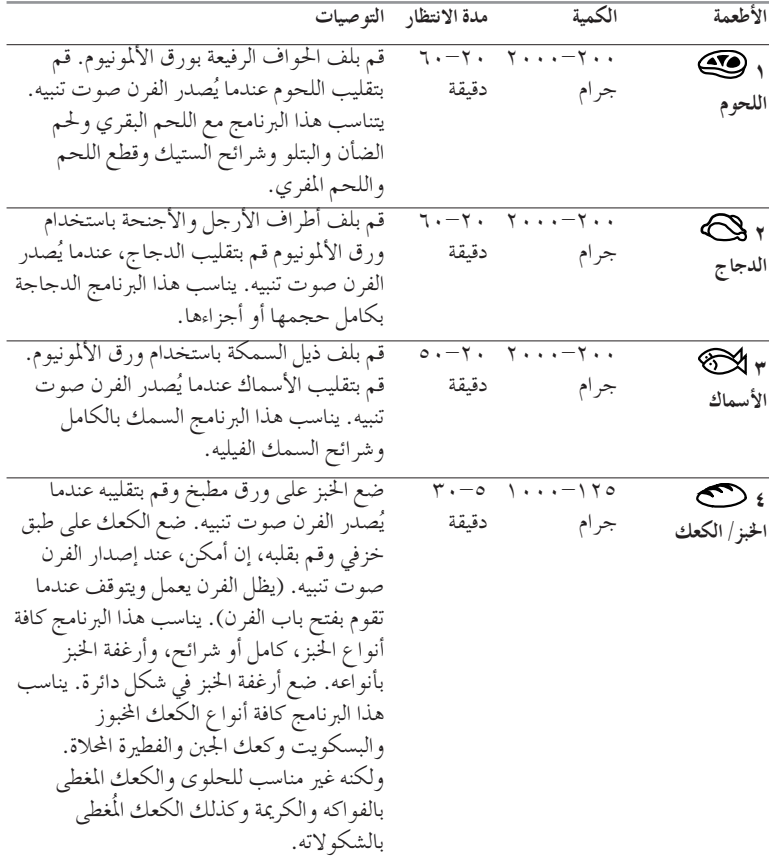 الأطعمة الكمية مدة الانتظار التوصيات
١ ٢٠٠–٢٠٠٠ ٢٠–٦٠ قم بلف الحواف الرفيعة بورق الألمونيوم. قم
اللحوم جرام دقيقة بتقليب اللحوم عندما يُصدر الفرن صوت تنبيه.
يتناسب هذا البرنامج مع اللحم البقري ولحم
الضأن والبتلو وشرائح الستيك وقطع اللحم
واللحم المفري.
٢ ٢٠٠–٢٠٠٠ ٢٠–٦٠ قم بلف أطراف الأرجل والأجنحة باستخدام
الدجاج جرام دقيقة ورق الألمونيوم قم بتقليب الدجاج، عندما يُصدر
الفرن صوت تنبيه. يناسب هذا البرنامج الدجاجة
بكامل حجمها أو أجزاءها.
٣ ٢٠٠–٢٠٠٠ ٢٠–٥٠ قم بلف ذيل السمكة باستخدام ورق الألمونيوم.
الأسماك جرام دقيقة قم بتقليب الأسماك عندما يُصدر الفرن صوت
تنبيه. يناسب هذا البرنامج السمك بالكامل
وشرائح السمك الفيليه.
٤ ١٢٥–١٠٠٠ ٥–٣٠ ضع الخبز على ورق مطبخ وقم بتقليبه عندما
الخبز/ الكعك جرام دقيقة يُصدر الفرن صوت تنبيه. ضع الكعك على طبق
خزفي وقم بقلبه، إن أمكن، عند إصدار الفرن
صوت تنبيه. (يظل الفرن يعمل ويتوقف عندما
تقوم بفتح باب الفرن). يناسب هذا البرنامج كافة
أنواع الخبز، كامل أو شرائح، وأرغفة الخبز
بأنواعه. ضع أرغفة الخبز في شكل دائرة. يناسب
هذا البرنامج كافة أنواع الكعك المخبوز
والبسكويت وكعك الجبن والفطيرة المحلاة.
ولكنه غير مناسب للحلوى والكعك المغطى
بالفواكه والكريمة وكذلك الكعك المُغطى
بالشكولاته.